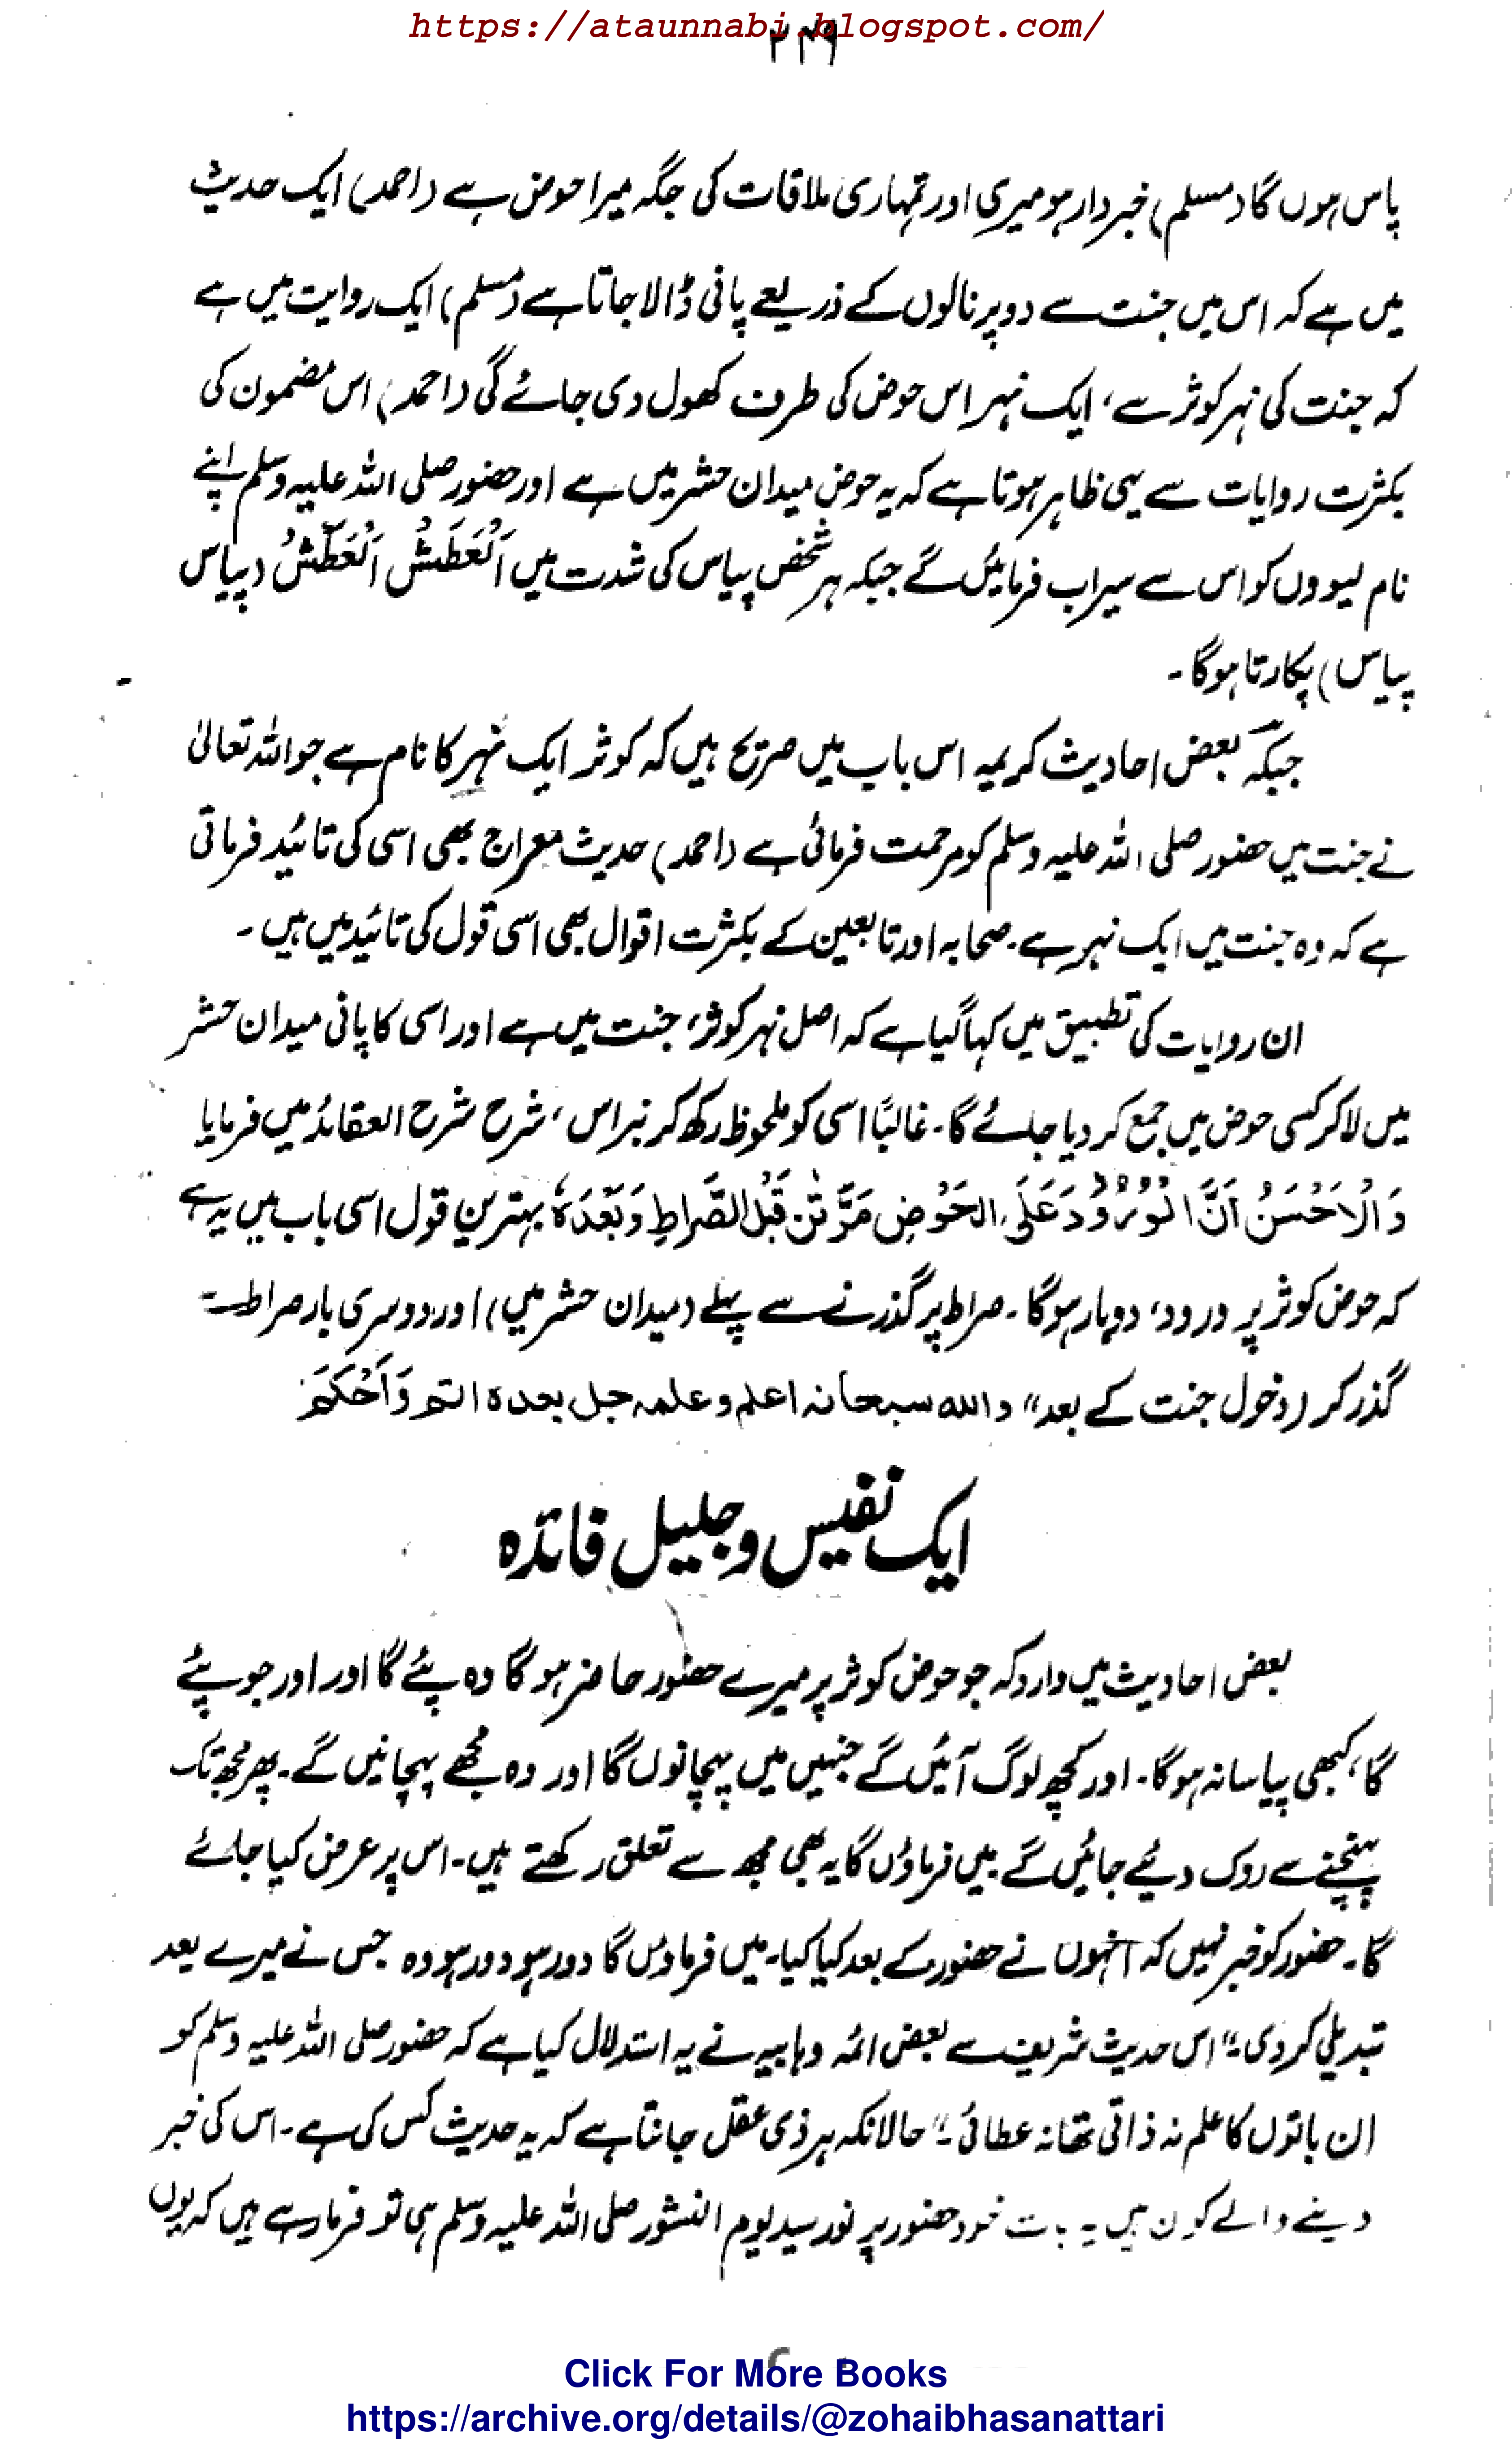 https://ataunnabi.blogspot.com/
۳۴۹
پاس ہوں گا (مسلم) خبردار ہو میری اور تمہاری ملاقات کی جگہ میرا حوض ہے (احمد) ایک حدیث
میں ہے کہ اس میں جنت سے دو پرنالوں کے ذریعے پانی ڈالا جاتا ہے (مسلم) ایک روایت میں ہے
کہ جنت کی نہر کوثر سے، ایک نہر اس حوض کی طرف کھول دی جائے گی (احمد) اس مضمون کی
بکثرت روایات سے یہی ظاہر ہوتا ہے کہ یہ حوض میدان حشر میں ہے اور حضور صلی اللہ علیہ وسلم اپنے
نام لیوؤں کو اس سے سیراب فرمائیں گے جبکہ ہر شخص پیاس کی شدت میں اَلْعَطَشُ اَلْعَطَشُ (پیاس
پیاس) پکارتا ہوگا۔
جبکہ بعض احادیث کریمہ اس باب میں صریح ہیں کہ کوثر ایک نہر کا نام ہے جو اللہ تعالیٰ
نے جنت میں حضور صلی اللہ علیہ وسلم کو مرحمت فرمائی ہے (احمد) حدیث معراج بھی اسی کی تائید فرماتی
ہے کہ وہ جنت میں ایک نہر ہے۔ صحابہ اور تابعین کے بکثرت اقوال بھی اسی قول کی تائید میں ہیں۔
ان روایات کی تطبیق میں کہا گیا ہے کہ اصل نہر کوثر، جنت میں ہے اور اسی کا پانی میدان حشر
میں لا کر کسی حوض میں جمع کر دیا جائے گا۔ غالباً اسی کو ملحوظ رکھ کر نبراس، شرح شرح العقائد میں فرمایا
وَالْاَحْسَنُ اَنَّ الْوُرُوْدَ عَلَی الحَوْضِ مَرَّتٰنِ قَبْلَ الصِّرَاطِ وَبَعْدَہٗ بہترین قول اسی باب میں یہ ہے
کہ حوض کوثر پر ورود، دوبار ہوگا۔ صراط پر گذرنے سے پہلے (میدان حشر میں) اور دوسری بار صراط سے
گذر کر (دخول جنت کے بعد" واللہ سبحانہ اعلم وعلمہ جل بعدہ اتم وَاَحْکَمُ
ایک نفیس و جلیل فائدہ
بعض احادیث میں وارد کہ جو حوض کوثر پر میرے حضور حاضر ہوگا وہ پئے گا اور اور جو پئے
گا، کبھی پیاسا نہ ہوگا۔ اور کچھ لوگ آئیں گے جنہیں میں پہچانوں گا اور وہ مجھے پہچانیں گے۔ پھر مجھ تک
پہنچنے سے روک دئیے جائیں گے میں فرماؤں گا یہ بھی مجھ سے تعلق رکھتے ہیں۔ اس پر عرض کیا جائے
گا۔ حضور کو خبر نہیں کہ انہوں نے حضور کے بعد کیا کیا۔ میں فرماؤں گا دور ہو دور ہو وہ جس نے میرے بعد
تبدیلی کردی۔" اس حدیث شریف سے بعض ائمہ وہابیہ نے یہ استدلال کیا ہے کہ حضور صلی اللہ علیہ وسلم کو
ان باتوں کا علم نہ ذاتی تھا نہ عطائی۔" حالانکہ ہر ذی عقل جانتا ہے کہ یہ حدیث کس کی ہے۔ اس کی خبر
دینے والے کون ہیں یہ بات خود حضور پر نور سید یوم النشور صلی اللہ علیہ وسلم ہی تو فرما رہے ہیں کہ یوں
Click For More Books
https://archive.org/details/@zohaibhasanattari